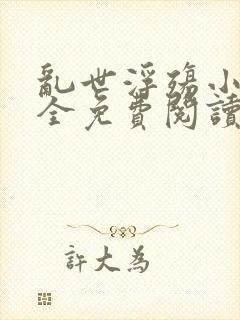 亂世浮殤小
全免費閱讀
許大為